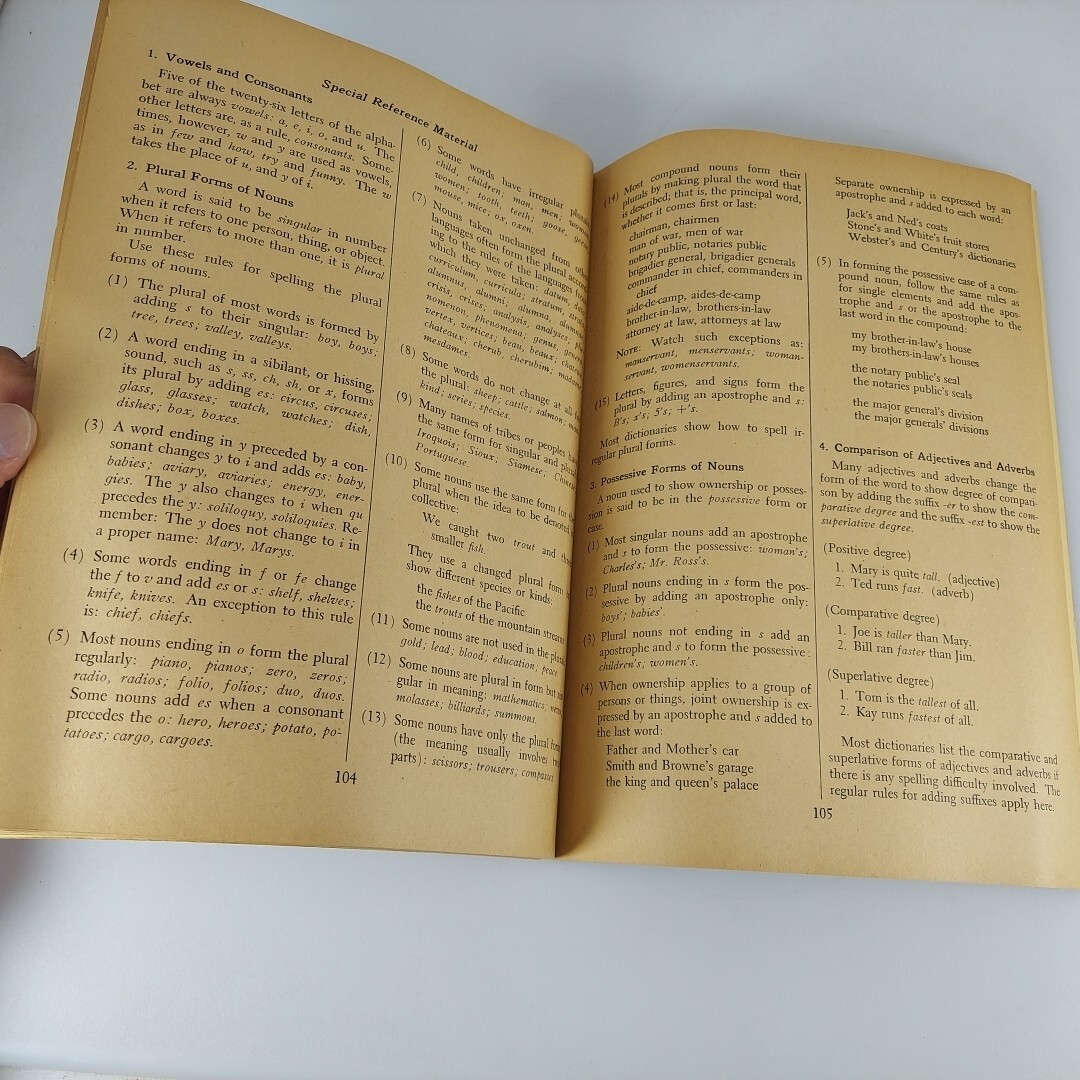 Special Reference Material
1. Vowels and Consonants
Five of the twenty-six letters of the alpha-
bet are always vowels: a, e, i, o, and u. The
other letters are, as a rule, consonants. Some-
times, however, w and y are used as vowels,
as in few and how, try and funny. The w
takes the place of u, and y of i.
2. Plural Forms of Nouns
A word is said to be singular in number
when it refers to one person, thing, or object.
When it refers to more than one, it is plural
in number.
Use these rules for spelling the plural
forms of nouns.
(1) The plural of most words is formed by
adding s to their singular: boy, boys;
tree, trees; valley, valleys.
(2) A word ending in a sibilant, or hissing,
sound, such as s, ss, ch, sh, or x, forms
its plural by adding es: circus, circuses;
glass, glasses; watch, watches; dish,
dishes; box, boxes.
(3) A word ending in y preceded by a con-
sonant changes y to i and adds es: baby,
babies; aviary, aviaries; energy, ener-
gies. The y also changes to i when qu
precedes the y: soliloquy, soliloquies. Re-
member: The y does not change to i in
a proper name: Mary, Marys.
(4) Some words ending in f or fe change
the f to v and add es or s: shelf, shelves;
knife, knives. An exception to this rule
is: chief, chiefs.
(5) Most nouns ending in o form the plural
regularly: piano, pianos; zero, zeros;
radio, radios; folio, folios; duo, duos.
Some nouns add es when a consonant
precedes the o: hero, heroes; potato, po-
tatoes; cargo, cargoes.
(6) Some words have irregular
child, children; man, men;
women; tooth, teeth; goose,
mouse, mice; ox, oxen.
(7) Nouns taken unchanged from
languages often form the plural
ing to the rules of the languages from
which they were taken: datum,
curriculum, curricula; stratum,
alumnus, alumni; alumna,
crisis, crises; analysis, analyses;
nomenon, phenomena; genus,
vertex, vertices; beau, beaux;
chateaux; cherub, cherubim;
mesdames.
(8) Some words do not change at all
the plural: sheep; cattle; salmon;
kind; series; species.
(9) Many names of tribes or peoples
the same form for singular and
Iroquois; Sioux; Siamese;
Portuguese.
(10) Some nouns use the same form for
plural when the idea to be denoted
collective:
We caught two trout and
smaller fish.
They use a changed plural form
show different species or kinds:
the fishes of the Pacific
the trouts of the mountain
(11) Some nouns are not used in the
gold; lead; blood; education;
(12) Some nouns are plural in form but
gular in meaning: mathematics;
molasses; billiards; summons.
(13) Some nouns have only the plural
(the meaning usually involves
parts): scissors; trousers;
104
(14) Most compound nouns form their
plurals by making plural the word that
is described; that is, the principal word,
whether it comes first or last:
chairman, chairmen
man of war, men of war
notary public, notaries public
brigadier general, brigadier generals
commander in chief, commanders in
chief
aide-de-camp, aides-de-camp
brother-in-law, brothers-in-law
attorney at law, attorneys at law
NOTE: Watch such exceptions as:
manservant, menservants; woman-
servant, womenservants.
(15) Letters, figures, and signs form the
plural by adding an apostrophe and s:
B's; x's; 5's; +'s.
Most dictionaries show how to spell ir-
regular plural forms.
3. Possessive Forms of Nouns
A noun used to show ownership or posses-
sion is said to be in the possessive form or
case.
(1) Most singular nouns add an apostrophe
and s to form the possessive: woman's;
Charles's; Mr. Ross's.
(2) Plural nouns ending in s form the pos-
sessive by adding an apostrophe only:
boys'; babies'.
(3) Plural nouns not ending in s add an
apostrophe and s to form the possessive:
children's; women's.
(4) When ownership applies to a group of
persons or things, joint ownership is ex-
pressed by an apostrophe and s added to
the last word:
Father and Mother's car
Smith and Browne's garage
the king and queen's palace
Separate ownership is expressed by an
apostrophe and s added to each word:
Jack's and Ned's coats
Stone's and White's fruit stores
Webster's and Century's dictionaries
(5) In forming the possessive case of a com-
pound noun, follow the same rules as
for single elements and add the apos-
trophe and s or the apostrophe to the
last word in the compound:
my brother-in-law's house
my brothers-in-law's houses
the notary public's seal
the notaries public's seals
the major general's division
the major generals' divisions
4. Comparison of Adjectives and Adverbs
Many adjectives and adverbs change the
form of the word to show degree of compari-
son by adding the suffix -er to show the com-
parative degree and the suffix -est to show the
superlative degree.
(Positive degree)
1. Mary is quite tall. (adjective)
2. Ted runs fast. (adverb)
(Comparative degree)
1. Joe is taller than Mary.
2. Bill ran faster than Jim.
(Superlative degree)
1. Tom is the tallest of all.
2. Kay runs fastest of all.
Most dictionaries list the comparative and
superlative forms of adjectives and adverbs if
there is any spelling difficulty involved. The
regular rules for adding suffixes apply here.
105